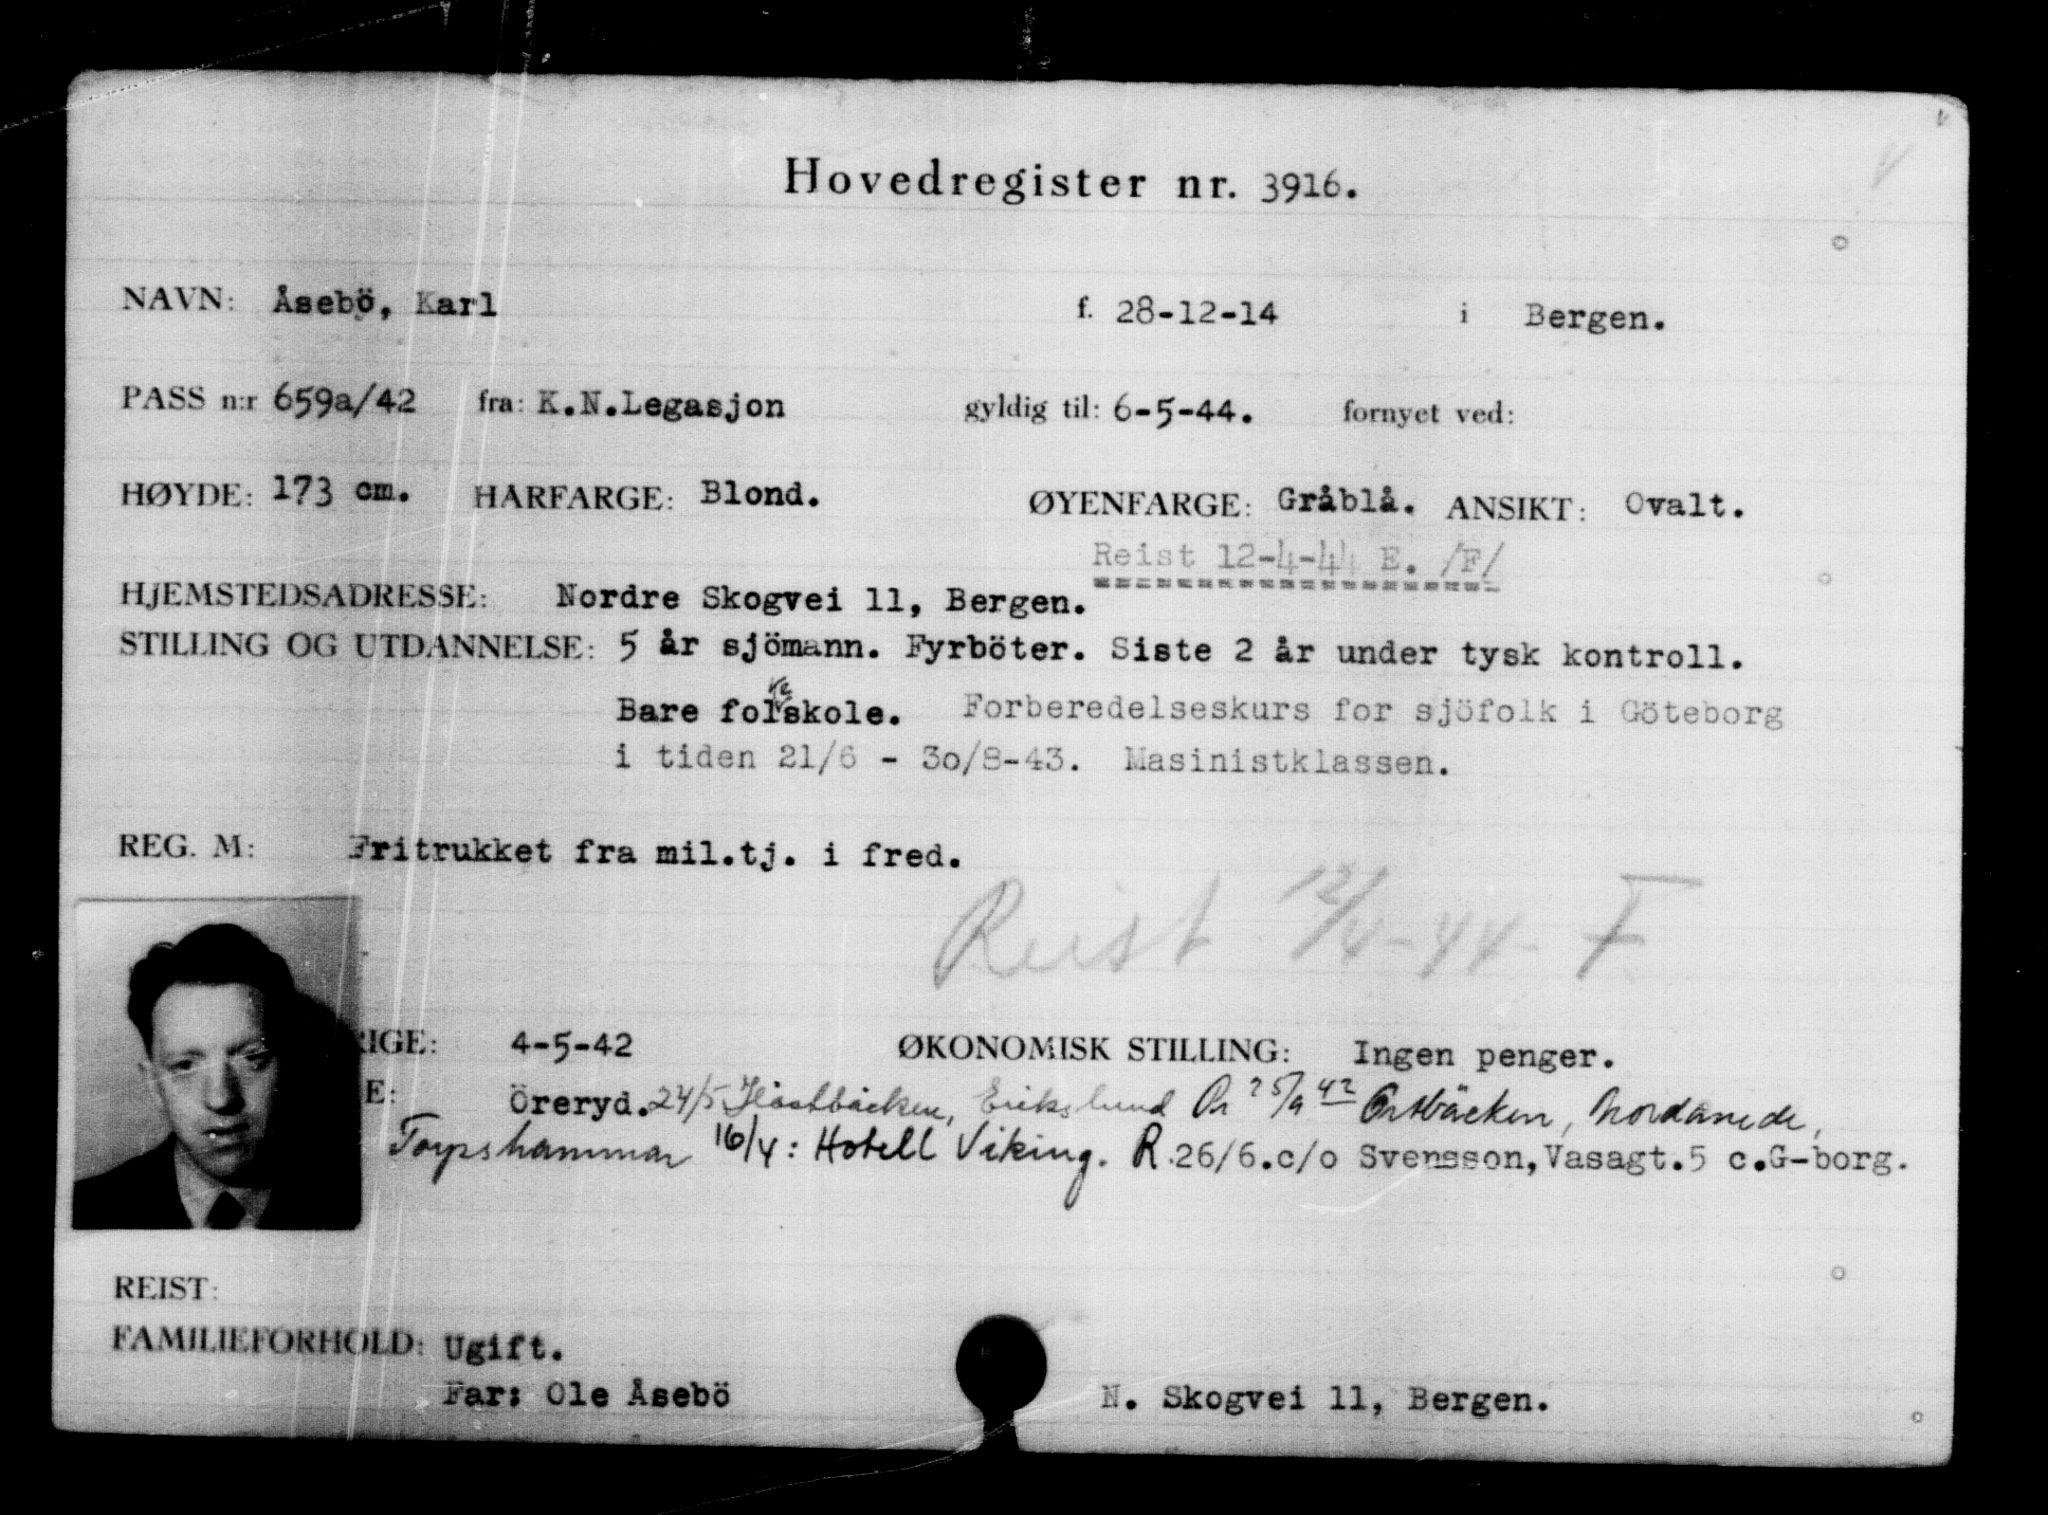 Hovedregister nr. 3916.
NAVN: Åsebö, Karl f. 28-12-14 i Bergen.
PASS n:r 659a/42 fra: K.N.Legasjon gyldig til: 6-5-44. fornyet ved:
HØYDE: 173 cm. HÅRFARGE: Blond. ØYENFARGE: Gråblå. ANSIKT: Ovalt.
Reist 12-4-44 E. /F/
HJEMSTEDSADRESSE: Nordre Skogvei 11, Bergen.
STILLING OG UTDANNELSE: 5 år sjömann. Fyrböter. Siste 2 år under tysk kontroll.
Bare folkeskole. Forberedelseskurs for sjöfolk i Göteborg
i tiden 21/6 - 30/8-43. Masinistklassen.
REG. M: Fritrukket fra mil.tj. i fred.
Reist 12/4-44- F
RIGE: 4-5-42 ØKONOMISK STILLING: Ingen penger.
E: Öreryd. 24/5 Håstbäcken, Erikslund 25/9 42 Nordanede,
Torpshammar 16/4: Hotell Viking. R.26/6.c/o Svensson,Vasagt.5 c.G-borg.
REIST:
FAMILIEFORHOLD: Ugift.
Far: Ole Åsebö N. Skogvei 11, Bergen.